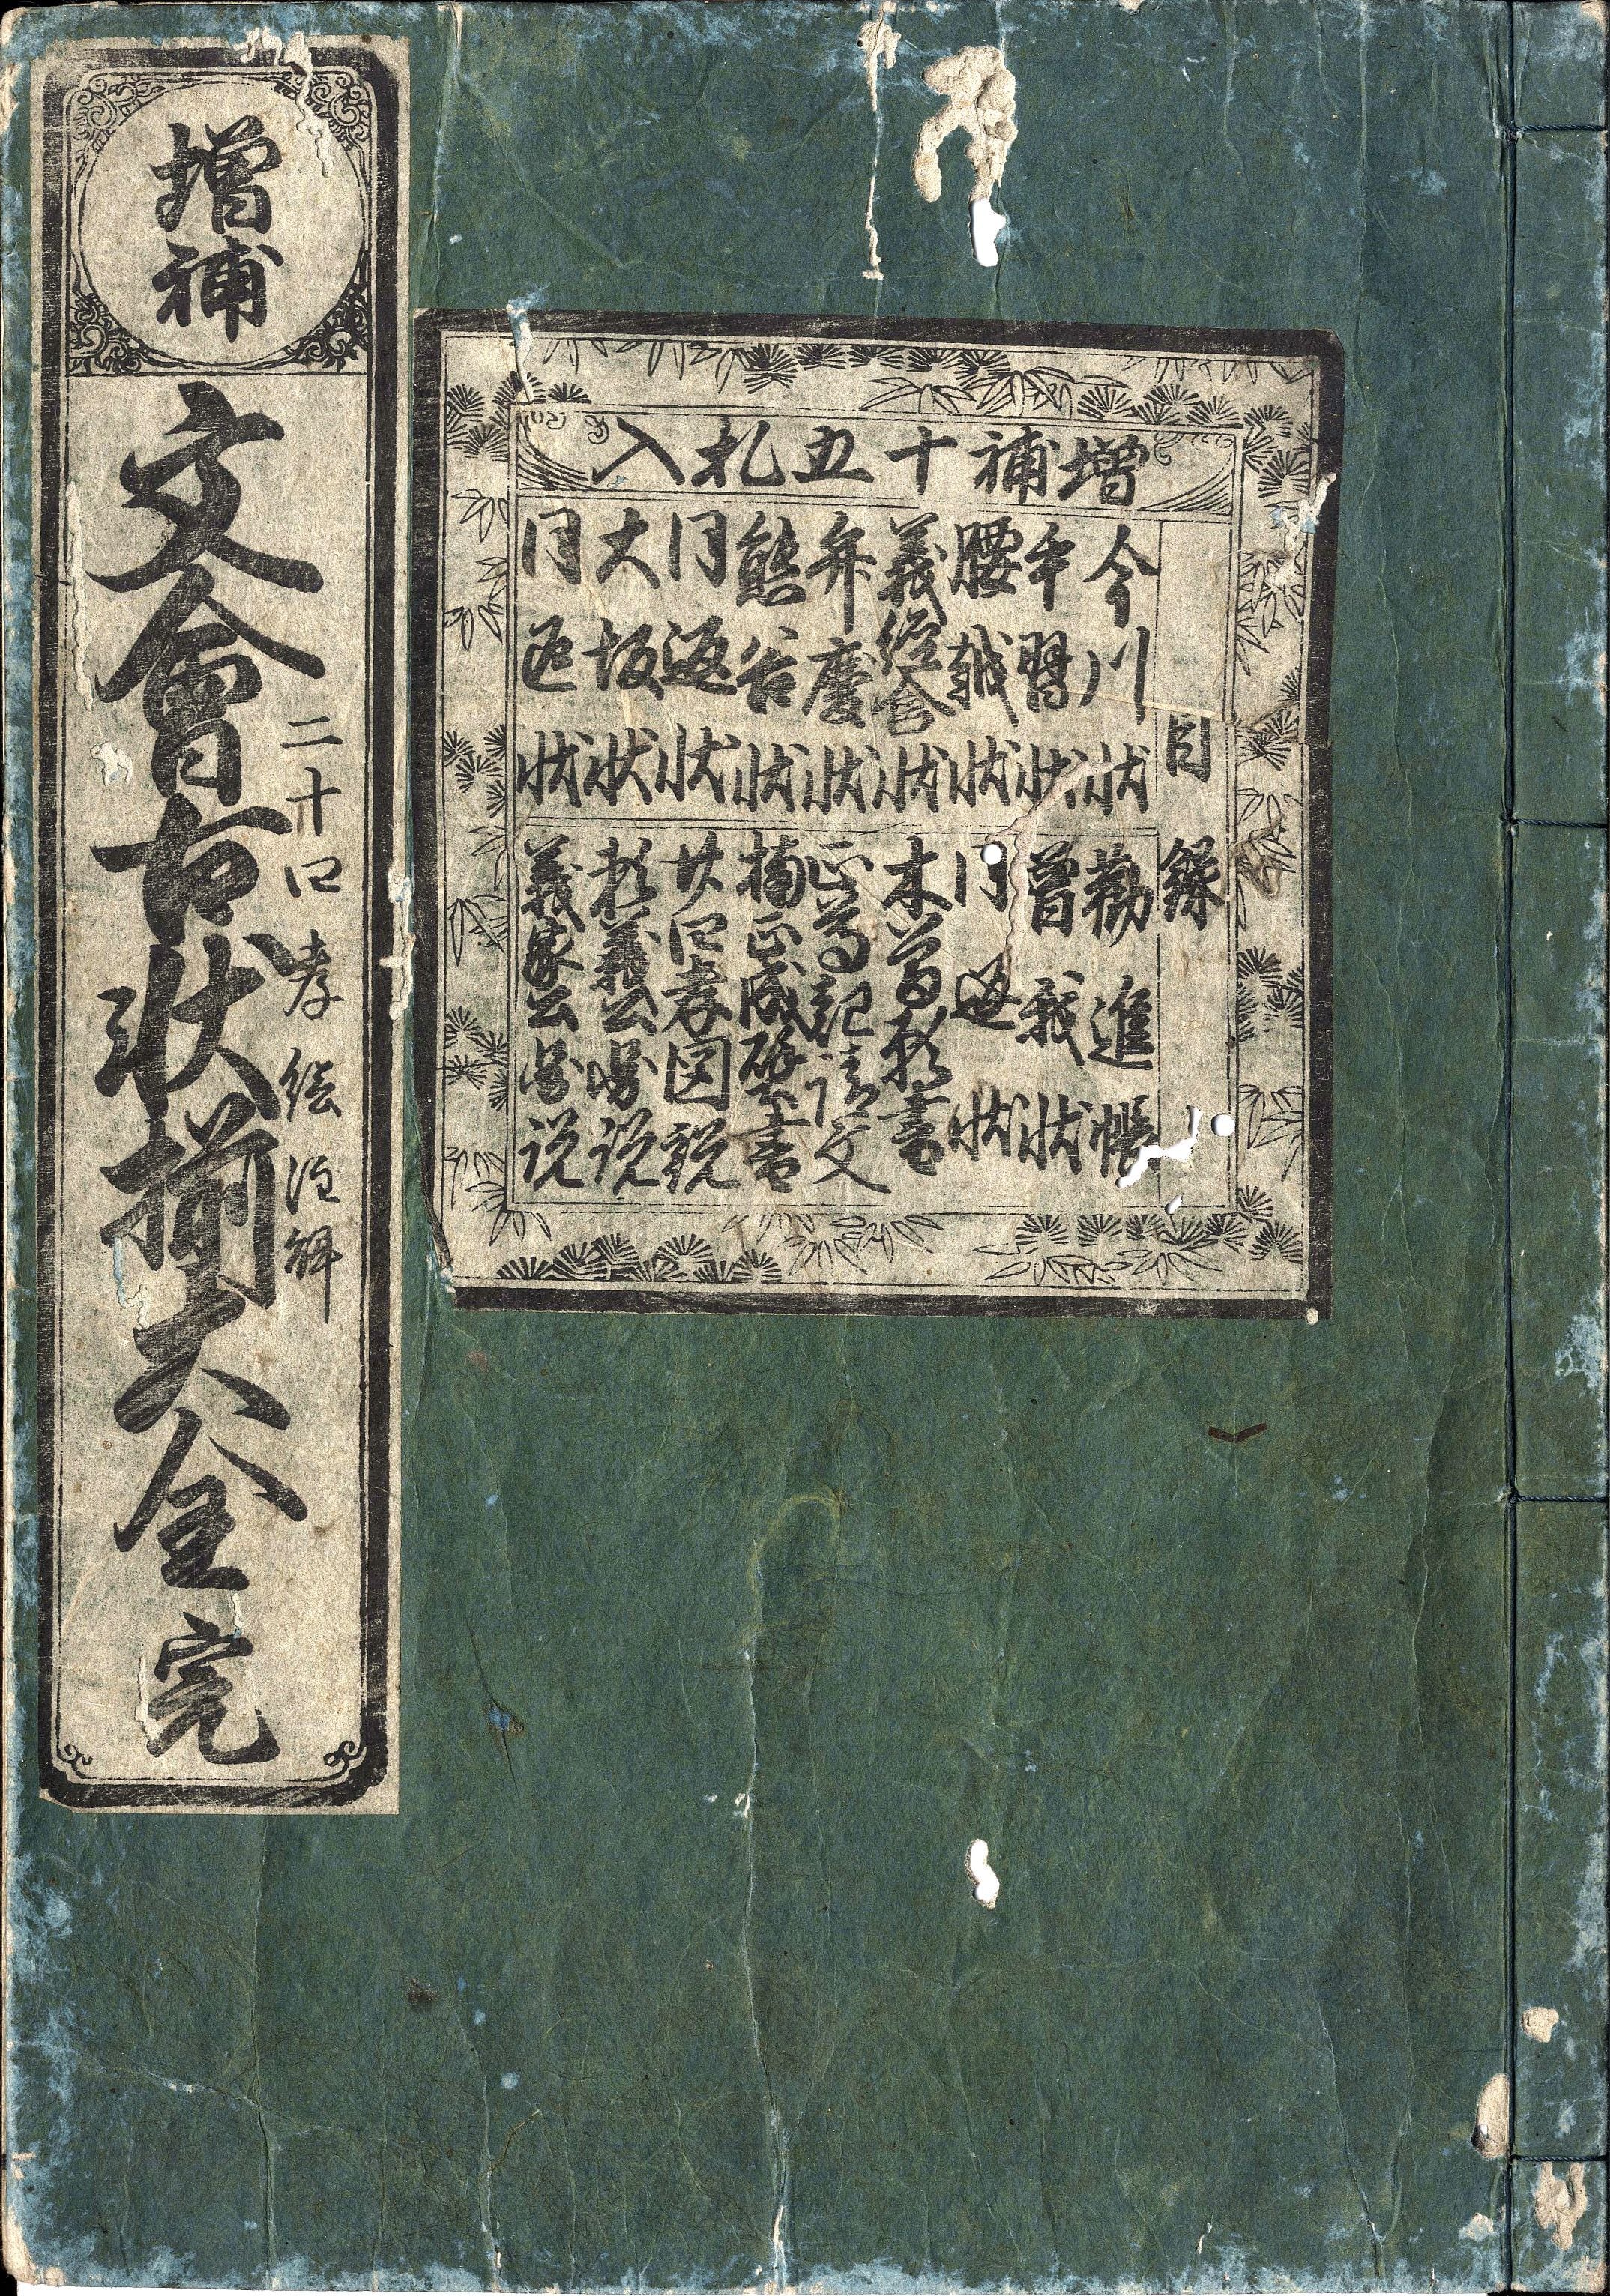 増補十五札入
目録
今川状
手習状
腰越状
義経含状
弁慶状
熊谷状
同返状
大坂状
同返状
勧進帳
曽我状
同返状
木曽願書
正尊記請文
楠正成壁書
廿四孝図説
頼義公畧説
義家公畧説
増補
文會古状揃大全 完
二十四孝 絵注解